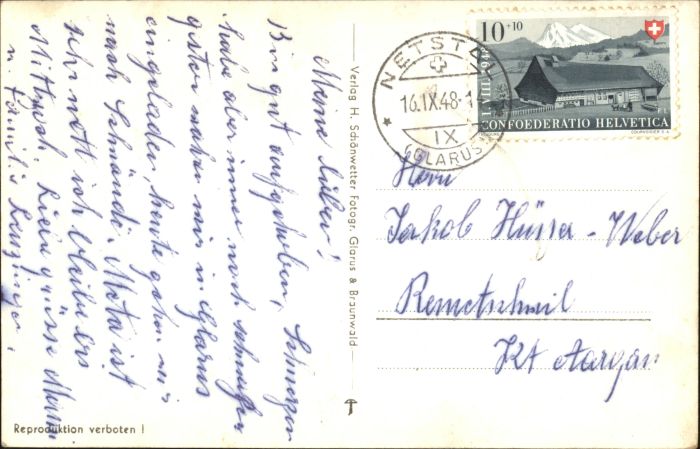 Meine Lieben!
Bin gut aufgehoben, Schmerzen
habe aber immer noch
gestern waren wir in Glarus
eingeladen, heute gehen wir
nach Schwändi, Meta ist
sehr nett ich bleibe bis
Mittwoch. Liebe Grüsse
u. Familie
Verlag H. Schönwetter Fotogr. Glarus & Braunwald
Reproduktion verboten !
10+10
I.VIII.
CONFOEDERATIO HELVETICA
COURVOISIER S.A.
NETSTAL
16.IX.48-1
IX
(GLARUS)
Herrn
Jakob Hüsser-Weber
Remetschwil
Kt Aargau